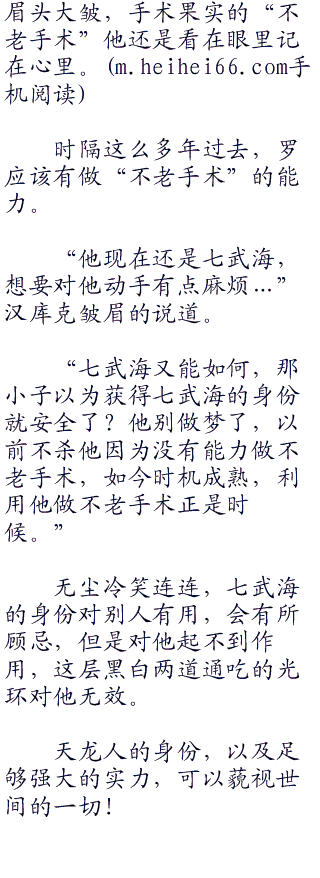 眉头大皱，手术果实的“不
老手术”他还是看在眼里记
在心里。(m.heihei66.com手
机阅读)
时隔这么多年过去，罗
应该有做“不老手术”的能
力。
“他现在还是七武海，
想要对他动手有点麻烦…”
汉库克皱眉的说道。
“七武海又能如何，那
小子以为获得七武海的身份
就安全了？他别做梦了，以
前不杀他因为没有能力做不
老手术，如今时机成熟，利
用他做不老手术正是时
候。”
无尘冷笑连连，七武海
的身份对别人有用，会有所
顾忌，但是对他起不到作
用，这层黑白两道通吃的光
环对他无效。
天龙人的身份，以及足
够强大的实力，可以藐视世
间的一切！